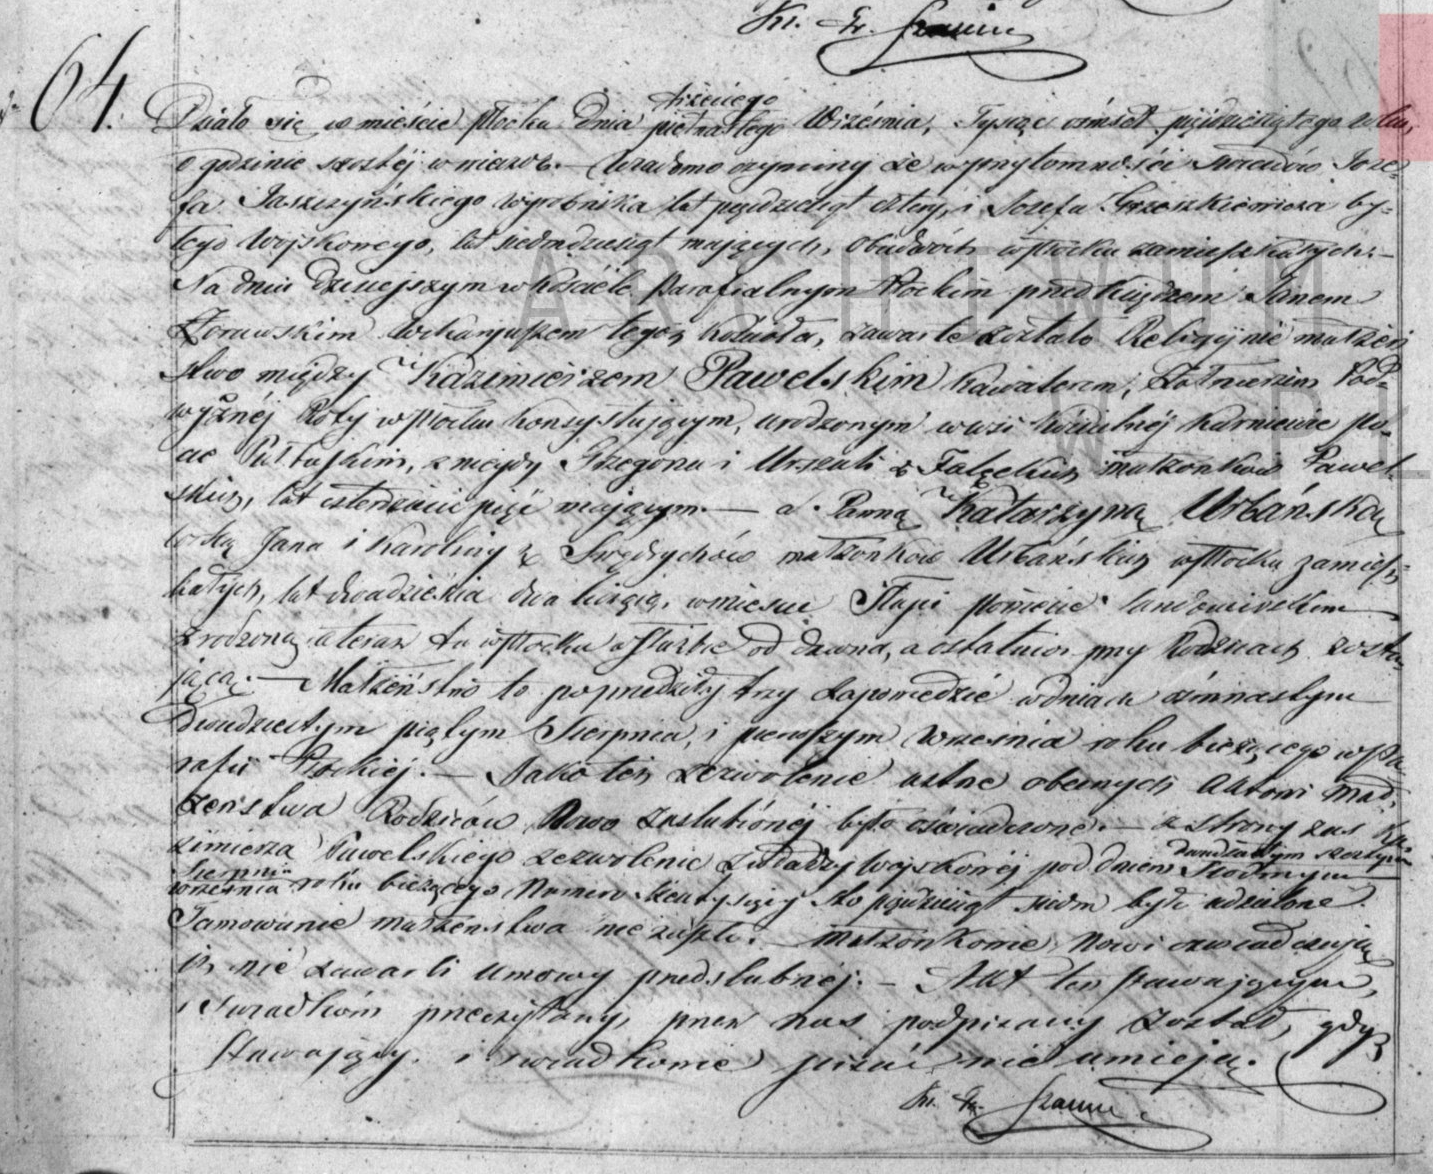 64.
Działo się w mieście Płocku dnia piętnastego trzeciego Września, Tysiąc ośmset pięćdziesiątego roku,
o godzinie szóstéj w wieczór. — Wiadomo czynimy że w przytomności świadków Józe-
fa Jaszczyńskiego wyrobnika lat pięćdziesiąt cztery, i Józefa Grzeszkiewicza by-
łego Wojskowego, lat siedmdziesiąt mających, obudwóch w Płocku zamieszkałych. —
Na dniu dzisiejszym w kościele Parafialnym Płockim przed Księdzem Janem
Żórawskim Wikaryuszem tegoż kościoła, zawarte zostało Religijnie małżeń
stwo między Kazimierzem Pawelskim kawalerem, Żołnierzem
Roty w Płocku konsystującym, urodzonym w wsi Kościelnéj Karniewie Po-
cie Pułtuskim, z niegdy Grzegorza i Urszuli z małżonków Pawel-
skich, lat czterdzieści pięć mającym. — a Panną Katarzyną Urbańską
córką Jana i Karoliny z małżonków Urbańskich w Płocku zamiesz-
kałych, lat dwadzieścia dwa liczącą, w mieście Słupi Powiecie Sandomirskim
zrodzoną a teraz tu w Płocku w służbie od dawna, a ostatnio przy Rodzicach zosta-
jącą. — Małżeństwo to poprzedziły trzy zapowiedzie w dniach ośmnastym
dwudziestym piątym Sierpnia, i pierwszym Września roku bieżącego w Pa-
rafii Płockiéj. — Jako też zezwolenie ustne obecnych aktowi mał-
żeństwa Rodziców Nowo zaslubionéj było oświadczone. — z strony zaś Ka-
zimierza Pawelskiego zezwolenie Władzy Wojskowéj pod dniem Siódmym dwudziestym szóstym
Września Sierpnia roku bieżącego Numero sto pięćdziesiąt siedm było udzielone.
Tamowanie małżeństwa nie zaszło. — Małżonkowie Nowi oświadczają
iż nie zawarli umowy przedślubnéj. — Akt ten stawającym,
i świadkom przeczytany, przez nas podpisany został, gdyż
stawający i świadkowie pisać nie umieją.